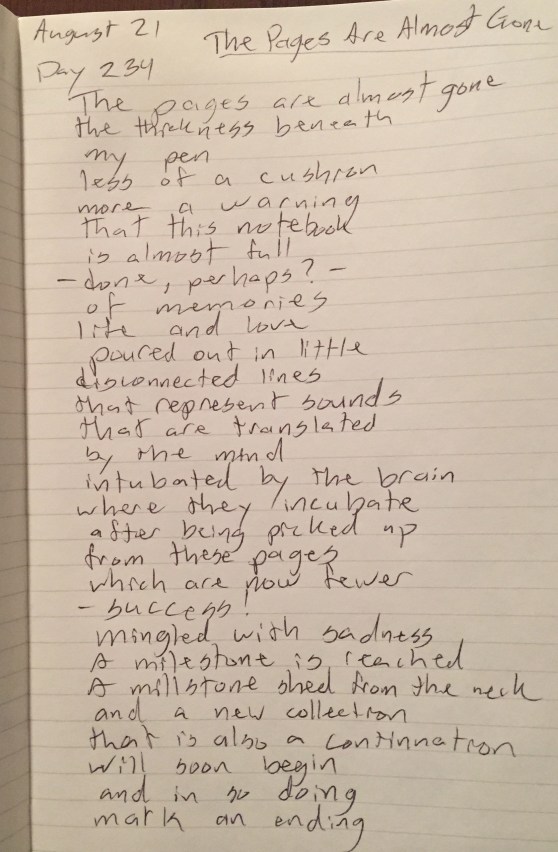 August 21
The Pages Are Almost Gone
Day 234
The pages are almost gone
the thickness beneath
my pen
less of a cushion
more a warning
that this notebook
is almost full
- done, perhaps? -
of memories
life and love
poured out in little
disconnected lines
that represent sounds
that are translated
by the mind
intubated by the brain
where they incubate
after being picked up
from these pages
which are now fewer
- success!
mingled with sadness
A milestone is reached
A millstone shed from the neck
and a new collection
that is also a continuation
will soon begin
and in so doing
mark an ending